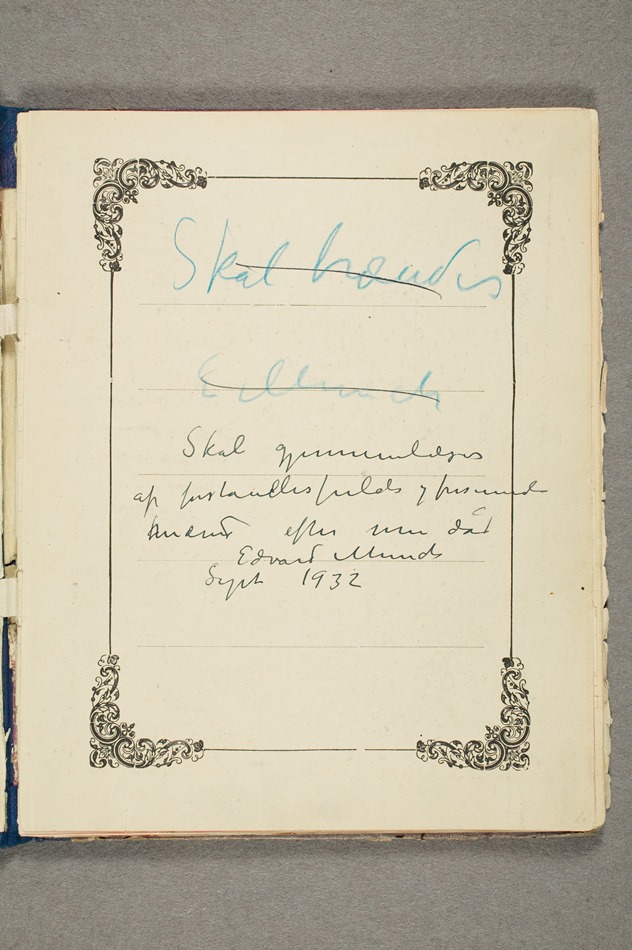 Skal brændes
E. Munch
Skal gjennemlæses
af forstandiksfulde og frisinnede
mænd efter min død
Edvard Munch
Sept 1932